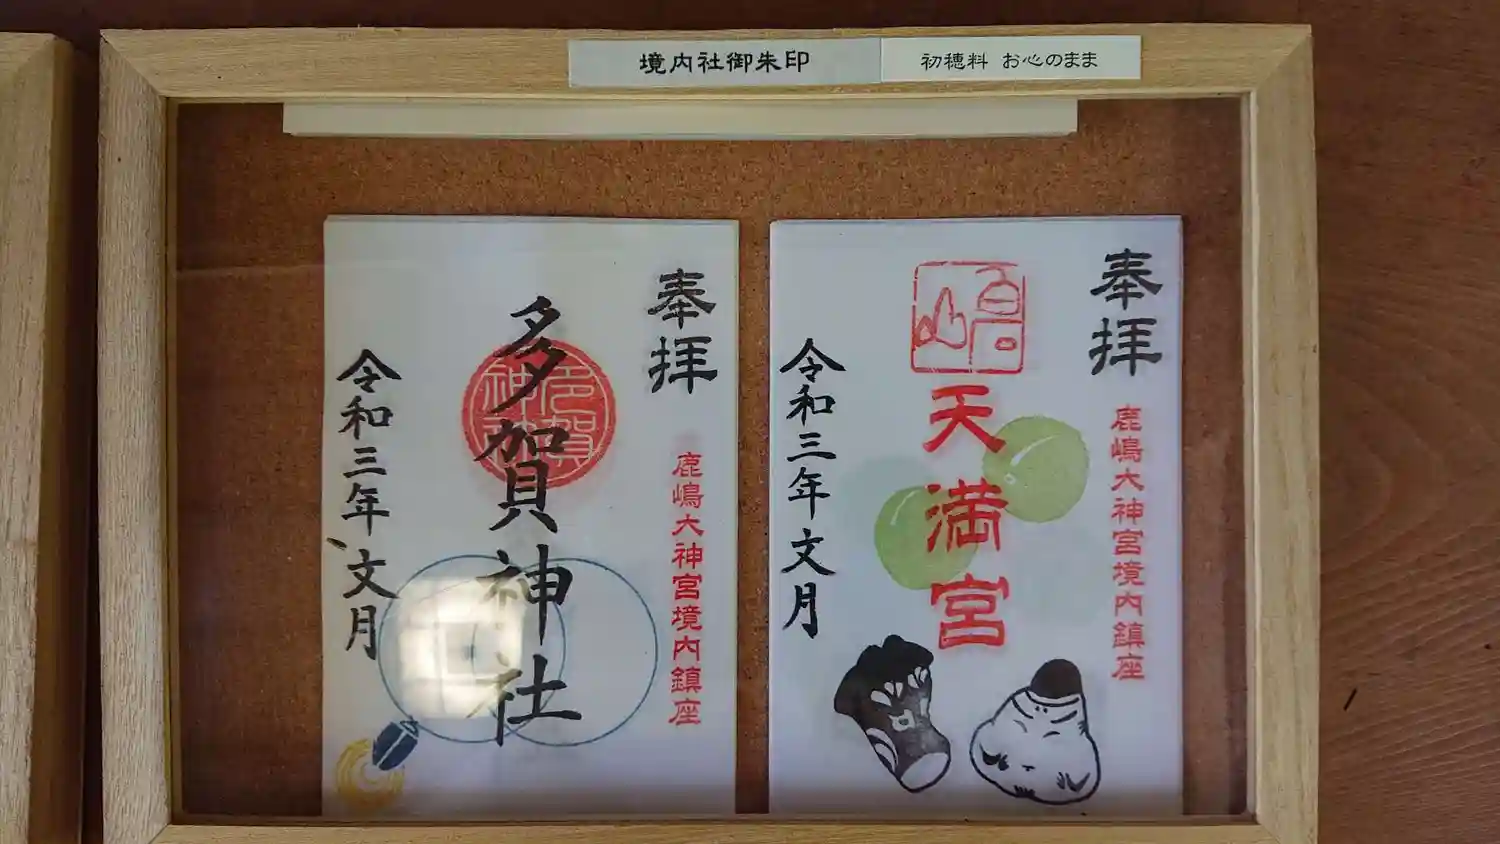 境内社御朱印
初穂料 お心のまま
奉拝
鹿嶋大神宮境内鎮座
多賀神社
令和三年文月
奉拝
鹿嶋大神宮境内鎮座
天満宮
令和三年文月